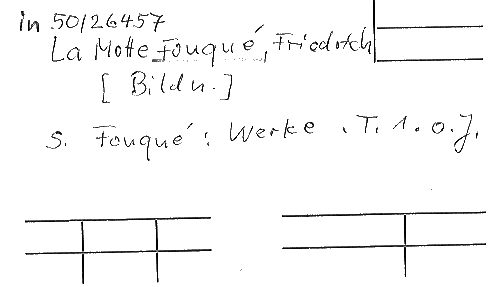 in 50/26457
La Motte Fouqué, Friedrich
[ Bildn. ]
s. Fouqué: Werke. T. 1. o.J.